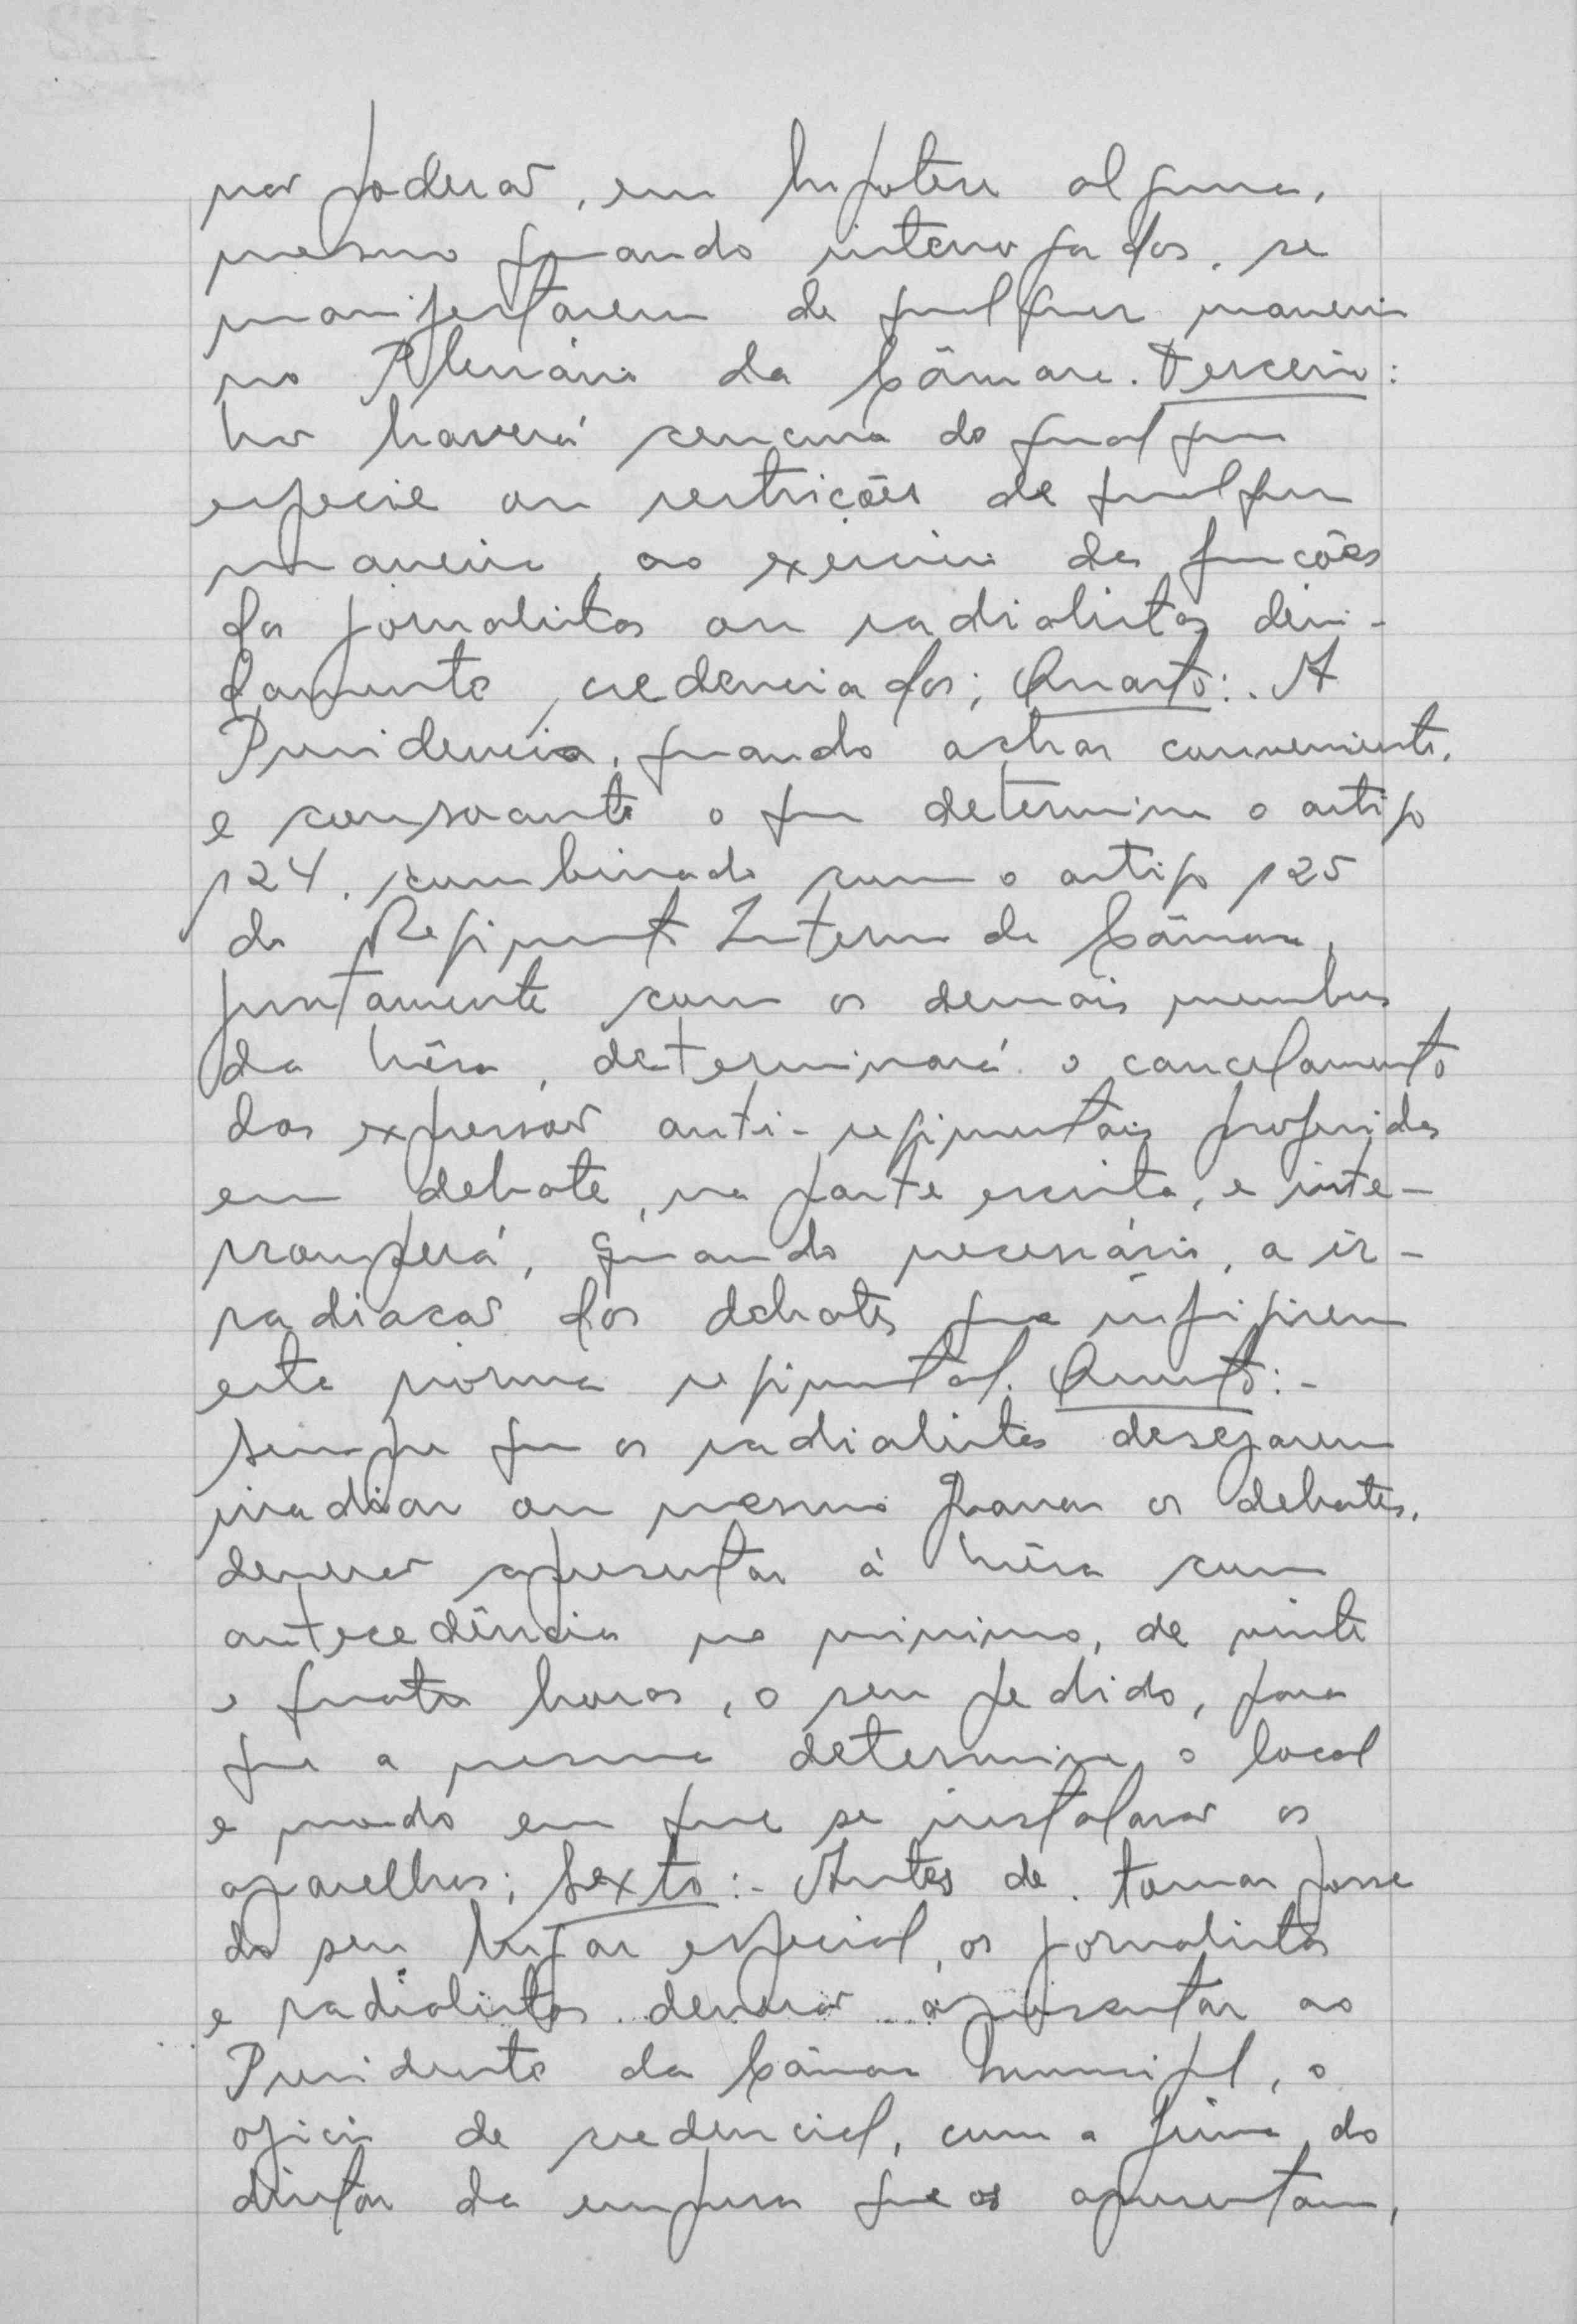 não poderão, em hipotese alguma,
mesmo quando interrogados, se
manifestarem de qualquer maneira
no Plenário da Câmara. Terceiro:
Não haverá censura de qualquer
especie ou restrições de qualquer
maneira, ao exercicio das funções
dos jornalistas ou radialistas devi-
damente credenciados; Quarto:. A
Presidencia, quando achar conveniente,
e consoante o que determina o artigo
124, combinado com o artigo 125
do Regimento Interno da Câmara,
juntamente com os demais membros
da Mêsa, determinará o cancelamento
das expressões anti-regimentais proferidas
em debate, na parte escrita, e inte-
rromperá, quando necessário, a ir-
radiacão dos debates que infrigirem
esta norma regimental. Quinto:-
Sempre que os radialistas desejarem
irradiar ou mesmo gravar os debates,
deverão apresentar à Mêsa com
antecedência no minimo, de vinte
e quatro horas, o seu pedido, para
que a mesma determine o local
e modo em que se instalarão os
aparelhos; Sexto:- Antes de tomar posse
do seu lugar especial, os jornalistas
e radialistas deverão apresentar ao
Presidente da Câmara Municipal, o
oficio de credencial, com a firma do
diretor da empresa que os apresentam,